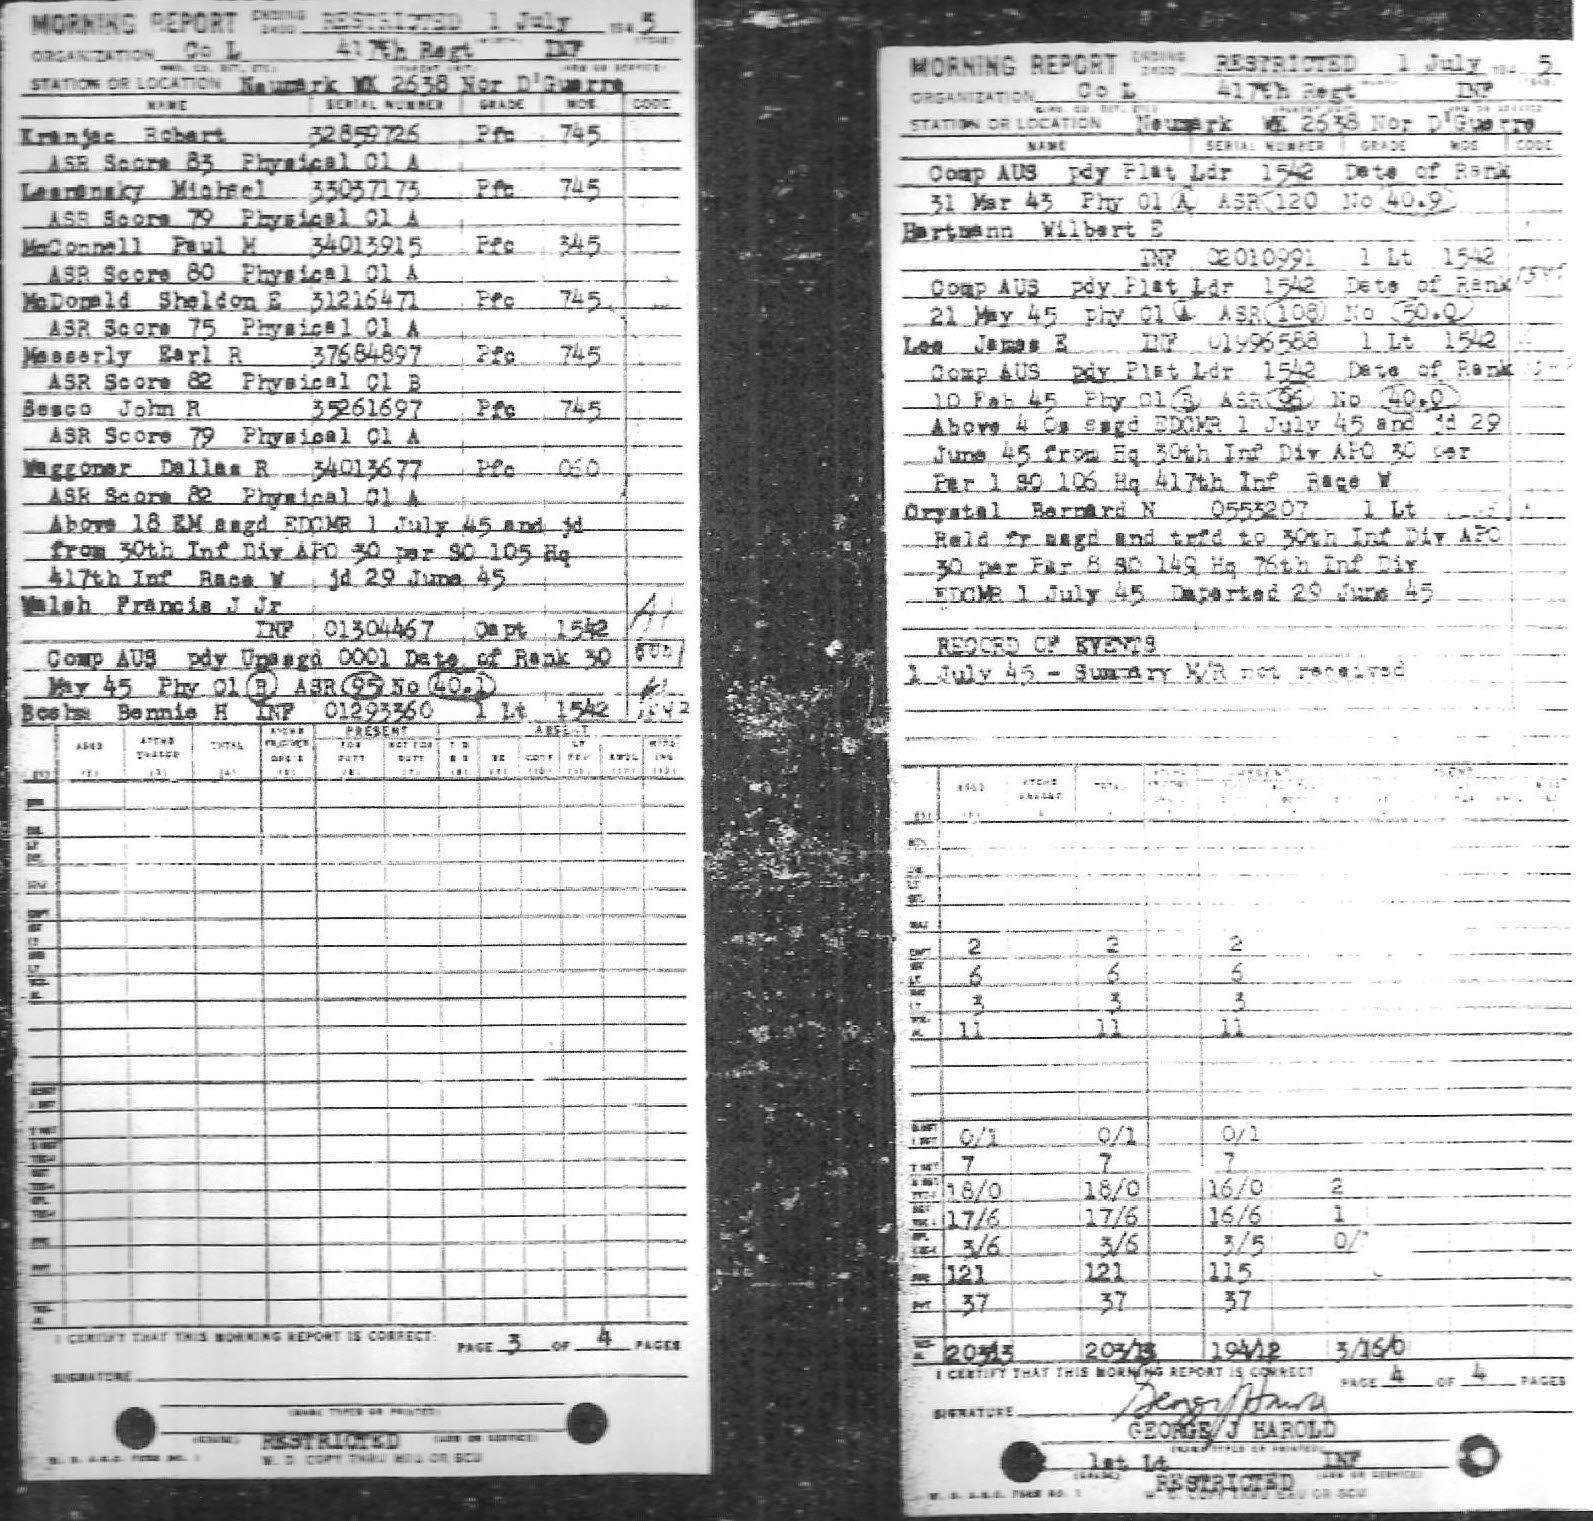 MORNING REPORT ENDING RESTRICTED 1 July 1945
ORGANIZATION Co L 417th Regt INF
STATION OR LOCATION Neumark WK 2638 Nor D'Guerre
NAME SERIAL NUMBER GRADE MOS CODE
Kranjac Robert 32859726 Pfc 745
ASR Score 83 Physical Cl A
Learensky Michael 33037173 Pfc 745
ASR Score 79 Physical Cl A
McConnell Paul M 34013915 Pfc 345
ASR Score 80 Physical Cl A
McDonald Sheldon E 31216471 Pfc 745
ASR Score 75 Physical Cl A
Messerly Earl R 37684897 Pfc 745
ASR Score 82 Physical Cl B
Sesco John R 35261697 Pfc 745
ASR Score 79 Physical Cl A
Waggoner Dallas R 34013677 Pfc 060
ASR Score 82 Physical Cl A
Above 18 EM asgd EDCMR 1 July 45 and jd
from 30th Inf Div APO 30 per SO 105 Hq
417th Inf Race W jd 29 June 45
Walsh Francis J Jr
INF 01304467 Capt 1542
Comp AUS pdy Unasgd 0001 Date of Rank 30
May 45 Phy Cl B ASR 95 No 40.1
Bosha Bennie H INF 01293360 1 Lt 1542 1542
ASGD TOTAL PRESENT ABSENT
I CERTIFY THAT THIS MORNING REPORT IS CORRECT:
PAGE 3 OF 4 PAGES
SIGNATURE
(NAME TYPED OR PRINTED)
(GRADE) RESTRICTED (ARM OR SERVICE)
W. D. COPY THRU MRU OR SCU
MORNING REPORT ENDING RESTRICTED 1 July 1945
ORGANIZATION Co L 417th Regt INF
STATION OR LOCATION Neumark WK 2638 Nor D'Guerre
NAME SERIAL NUMBER GRADE MOS CODE
Comp AUS pdy Plat Ldr 1542 Date of Rank
31 Mar 43 Phy Cl A ASR 120 No 40.9
Hartmann Wilbert E
INF 02010991 1 Lt 1542
Comp AUS pdy Plat Ldr 1542 Date of Rank
21 May 45 phy Cl A ASR 108 No 50.0
Lee James E INF 01996588 1 Lt 1542
Comp AUS pdy Plat Ldr 1542 Date of Rank
10 Feb 45 Phy Cl B ASR 96 No 40.0
Above 4 Os asgd EDCMR 1 July 45 and jd 29
June 45 from Hq 30th Inf Div APO 30 per
Par 1 SO 106 Hq 417th Inf Race W
Crystal Bernard N 0553207 1 Lt
Reld fr asgd and trfd to 30th Inf Div APO
30 per Par 8 SO 149 Hq 76th Inf Div
EDCMR 1 July 45 Departed 29 June 45
RECORD OF EVENTS
1 July 45 - Summary M/R not received
ASGD TOTAL
2 2 2
6 6 6
3 3 3
11 11 11
0/1 0/1 0/1
7 7 7
18/0 18/0 16/0 2
17/6 17/6 16/6 1
3/6 3/6 3/5
121 121 115
37 37 37
203/13 203/13 194/12 3/16/0
I CERTIFY THAT THIS MORNING REPORT IS CORRECT
PAGE 4 OF 4 PAGES
SIGNATURE George J Harold
GEORGE J HAROLD
(NAME TYPED OR PRINTED)
1st Lt INF
(GRADE) RESTRICTED (ARM OR SERVICE)